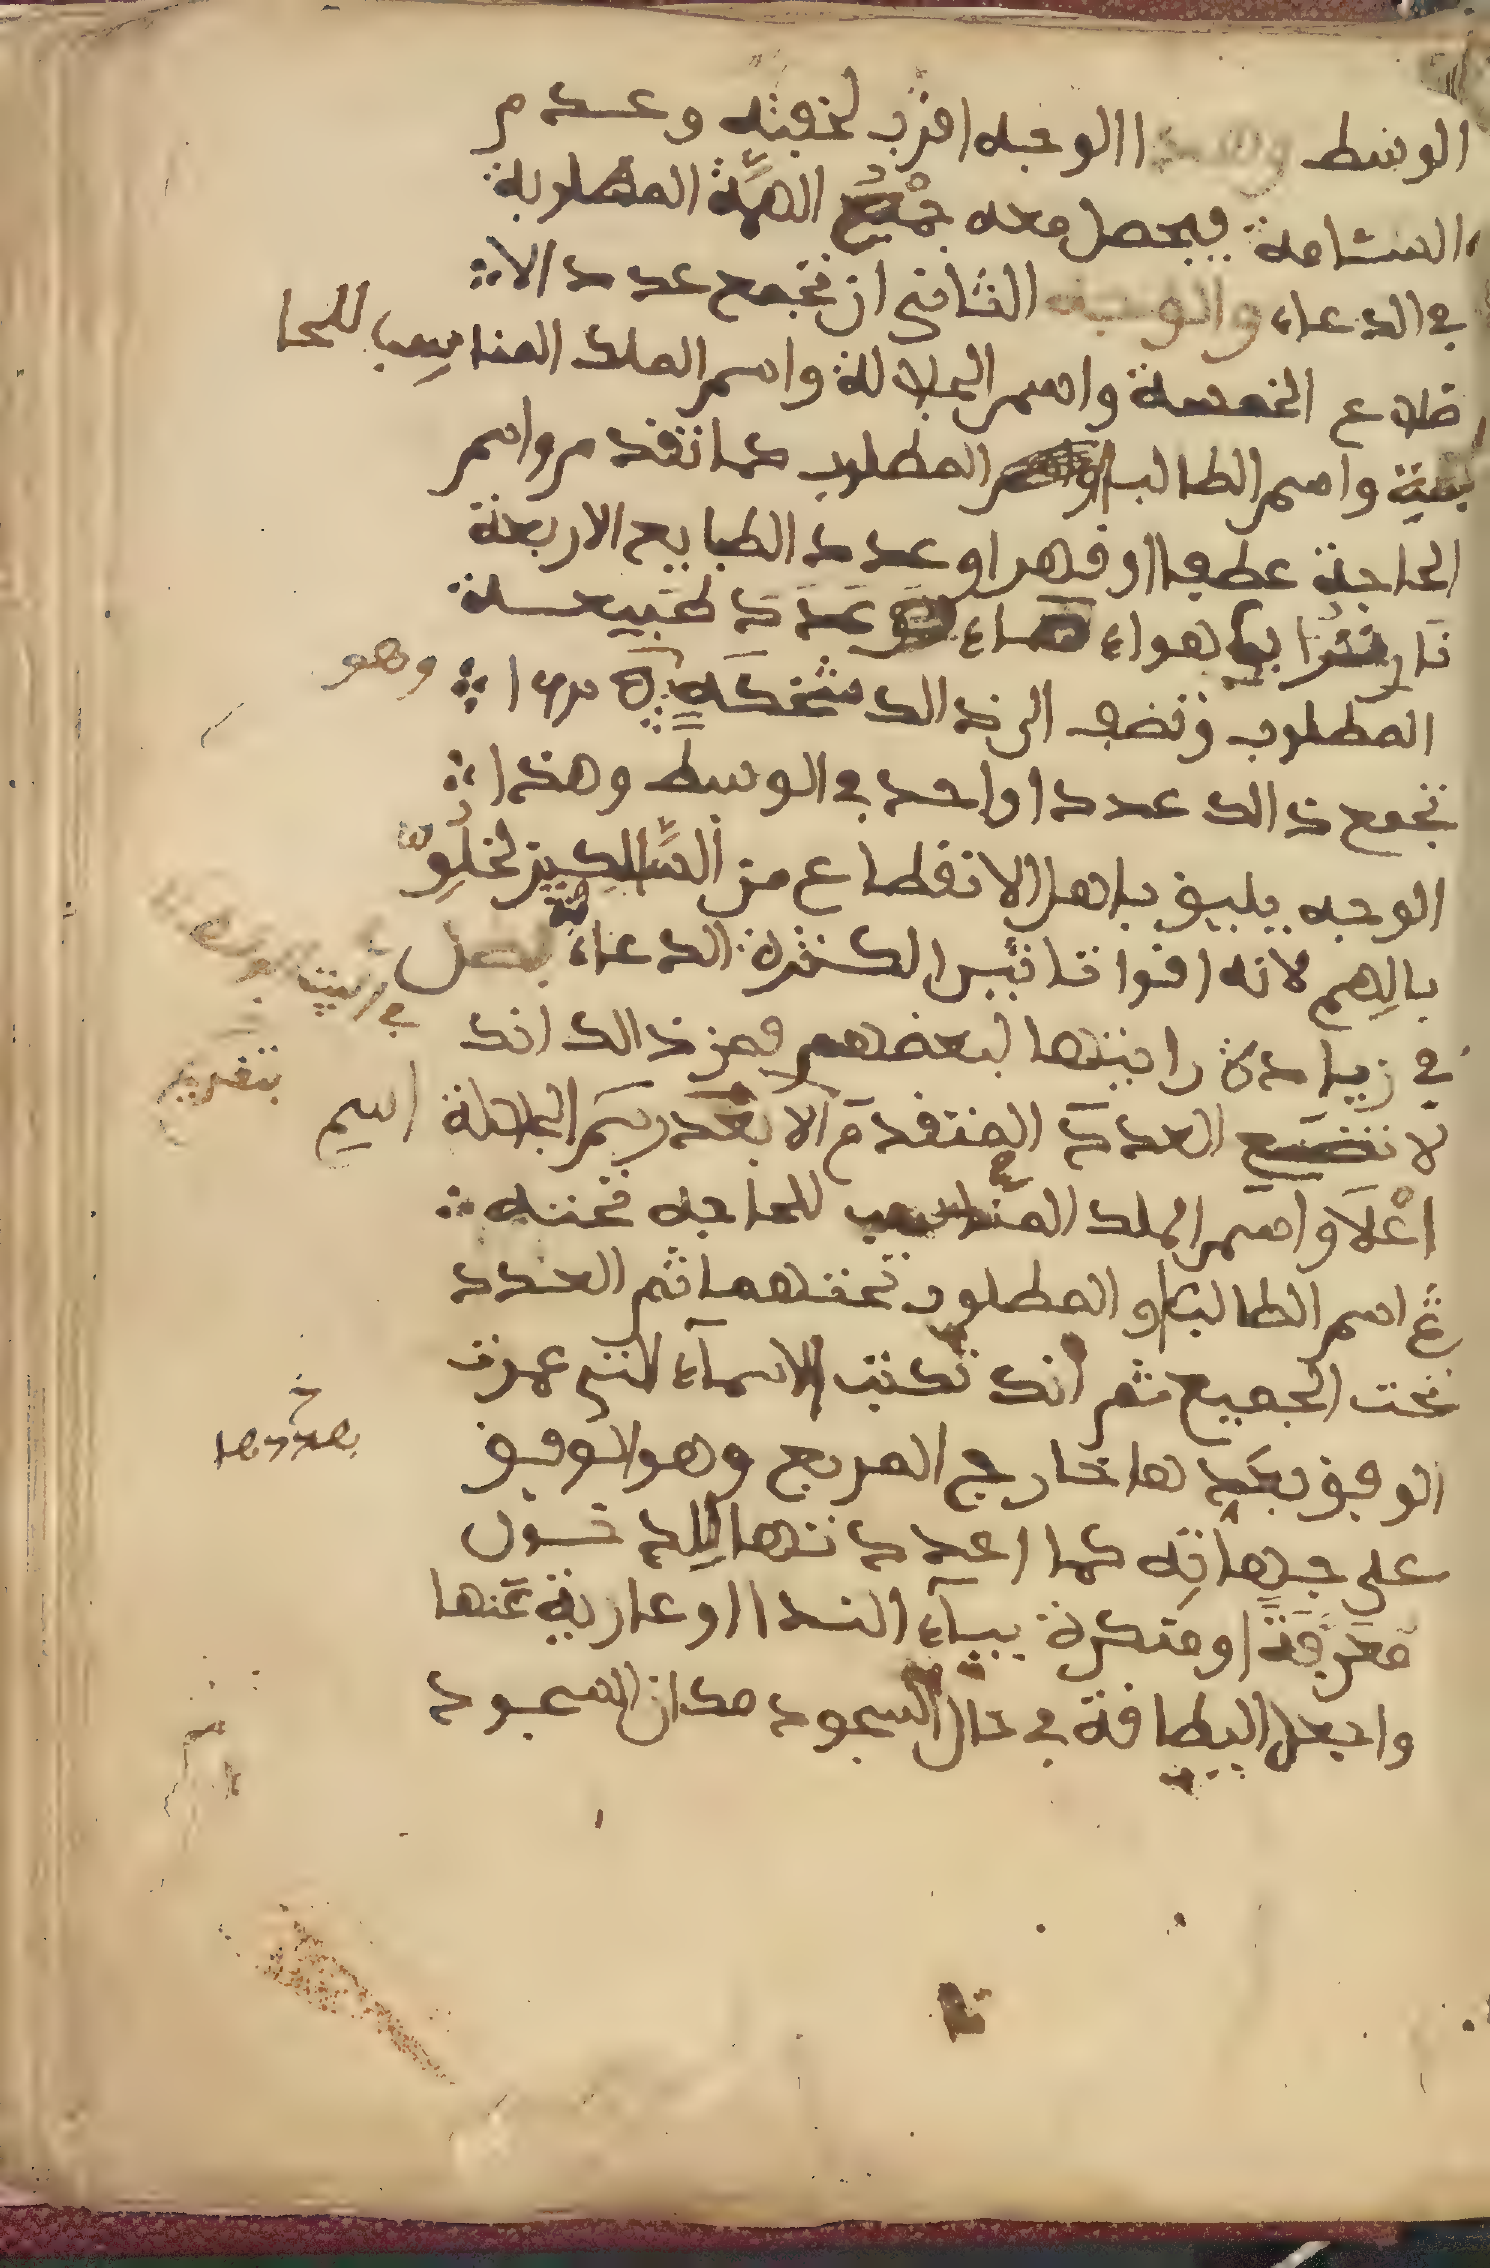 الوسط وهذا الوجه اقرب لخفته وعدم
السئامة فيحصل معه جَمْعُ الهِمَّة المطلوبة
في الدعاء والوجه الثاني ان تجمع عدد الا
ضلاع الخمسة واسم الجلالة واسم الملك المناسِب للحا
جة واسم الطالب المطلوب كما تقدم واسم
الحاجة عطفا او قهرا وعدد الطبايع الاربعة
نار هواء ماء عَدَدَ طبيعة
المطلوب وتضف الى ذالك وهو
تجمع ذالك عددا واحد في الوسط وهذا
الوجه يليق باهل الانقطاع من السَّالِكِين لخُلُوِّ
بالِهِم لانه اقوا تاثيرا لكثرة الدعاء
في زيادة رايتها لبعضهم فمن ذالك انك
لا تضع العدد المتقدم الا بعد رسم الجلالة اسم
اعْلَا واسم الملك المناسب للحاجه تحته
ثم اسم الطالب و المطلوب تحتهما ثم العدد
تحت الجميع ثم انك تكتب الاسماء التي عمرت
الوفق خارج المربع وهو الوفق بعددها
على جهاته كما اعددتها
مَعَرَّفَةً او منكرة بياء الندا او عارية عَنها
واجعل البطاقة في حال السجود مكان السجود